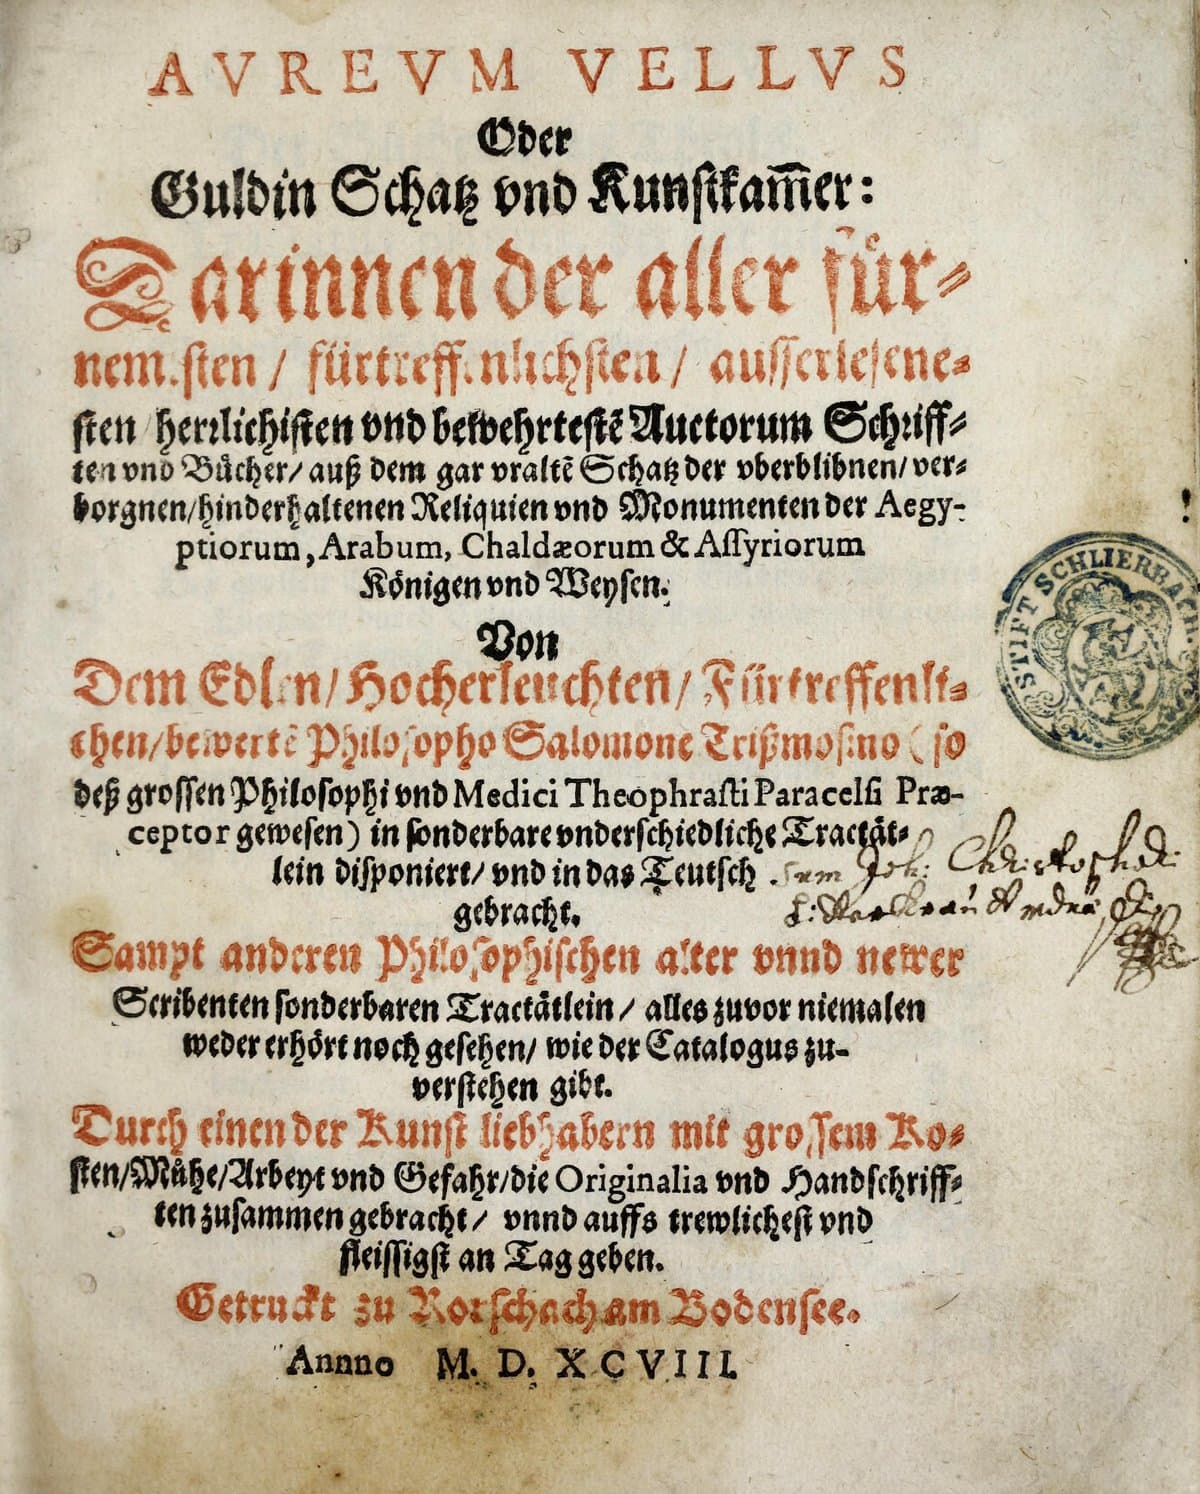 AVREVM VELLVS
Oder
Guldin Schatz vnd Kunstkam̅er:
Darinnen der aller für-
nemsten / fürtreffenlichsten / ausserlesene-
sten / herrlichisten vnd bewehrtestẽ Auctorum Schriff-
ten vnd Bücher/ auß dem gar vraltẽ Schatz der vberblibnen/ ver-
borgnen/ hinderhaltenen Reliquien vnd Monumenten der Aegy-
ptiorum, Arabum, Chaldæorum & Assyriorum
Königen vnd Weysen.
Von
Dem Edlen/ Hocherleuchten/ Fürtreffenli-
chen/ bewertẽ Philosopho Salomone Trißmosino (so
deß grossen Philosophi vnd Medici Theophrasti Paracelsi Præ-
ceptor gewesen) in sonderbare vnderschiedliche Tractät-
lein disponiert/ vnd in das Teutsch
gebracht.
Sum Joh:
Sampt anderen Philosophischen alter vnnd newer
Scribenten sonderbaren Tractätlein / alles zuvor niemalen
weder erhört noch gesehen/ wie der Catalogus zu-
verstehen gibt.
Durch einen der Kunst liebhabern mit grossem Ko-
sten/ Mühe/ Arbeyt vnd Gefahr/ die Originalia vnd Handschriff-
ten zusammen gebracht/ vnnd auffs trewlichest vnd
fleissigst an Tag geben.
Getruckt zu Rorschach am Bodensee.
Annno M. D. XCVIII.
STIFT SCHLIERBACH.